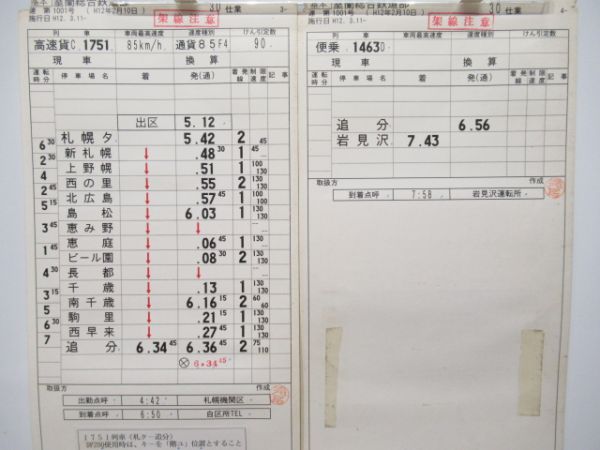 室蘭総合鉄道部
運 第 1001号 ( H12年2月10日 ) 30 仕業 3-
施行日 H12. 3.11- 架線注意
列車 車両最高速度 速度種別 けん引定数
高速貨C 1751 85km/h 通貨85F4 90
現車 換算
運転時分 停車場名 着 発(通) 着発線 制限速度 記事
出区 5.12
札幌タ 5.42 2 45
6 30 新札幌 ↓ .48 30 1
2 30 上野幌 ↓ .51 1 100 130
4 西の里 ↓ .55 2 100 130
2 45 北広島 ↓ .57 45 1 100
5 15 島松 ↓ 6.03 1 130
恵み野 ↓ ↓
3 45 恵庭 ↓ .06 45 1 130
1 45 ビール園 ↓ .08 30 2 130 130
長都 ↓ ↓
4 30 千歳 ↓ .13 1 130
3 15 南千歳 ↓ 6.16 15 2 60 60
5 駒里 ↓ .21 15 1 130
6 30 西早来 ↓ .27 45 1 130
7 追分 6.34 45 6.36 45 2 75 110
⊗ 6.34 45
取扱方 作成
出勤点呼 4:42 札幌機関区
到着点呼 6:50 自区所TEL
1751列車(札タ-追分)
室蘭総合鉄道部
運 第 1001号 ( H12年2月10日 ) 30 仕業 4-
施行日 H12. 3.11- 架線注意
列車 車両最高速度 速度種別 けん引定数
便乗 1463D
現車 換算
運転時分 停車場名 着 発(通) 着発線 制限速度 記事
追分 6.56
岩見沢 7.43
取扱方 作成
到着点呼 7:58 岩見沢運転所